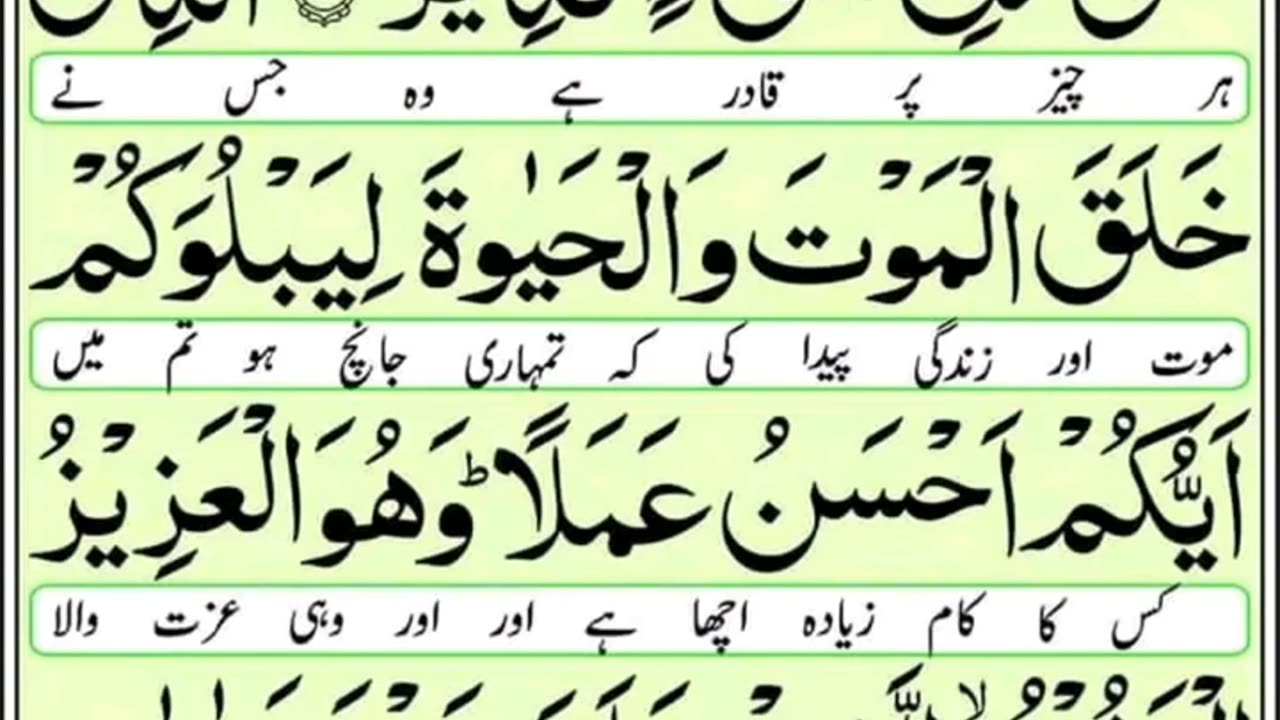 ہر چیز پر قادر ہے وہ جس نے
خَلَقَ الْمَوْتَ وَالْحَيٰوةَ لِيَبْلُوَكُمْ
موت اور زندگی پیدا کی کہ تمہاری جانچ ہو تم میں
اَيُّكُمْ اَحْسَنُ عَمَلًا ؕ وَهُوَ الْعَزِيْزُ
کس کا کام زیادہ اچھا ہے اور اور وہی عزت والا